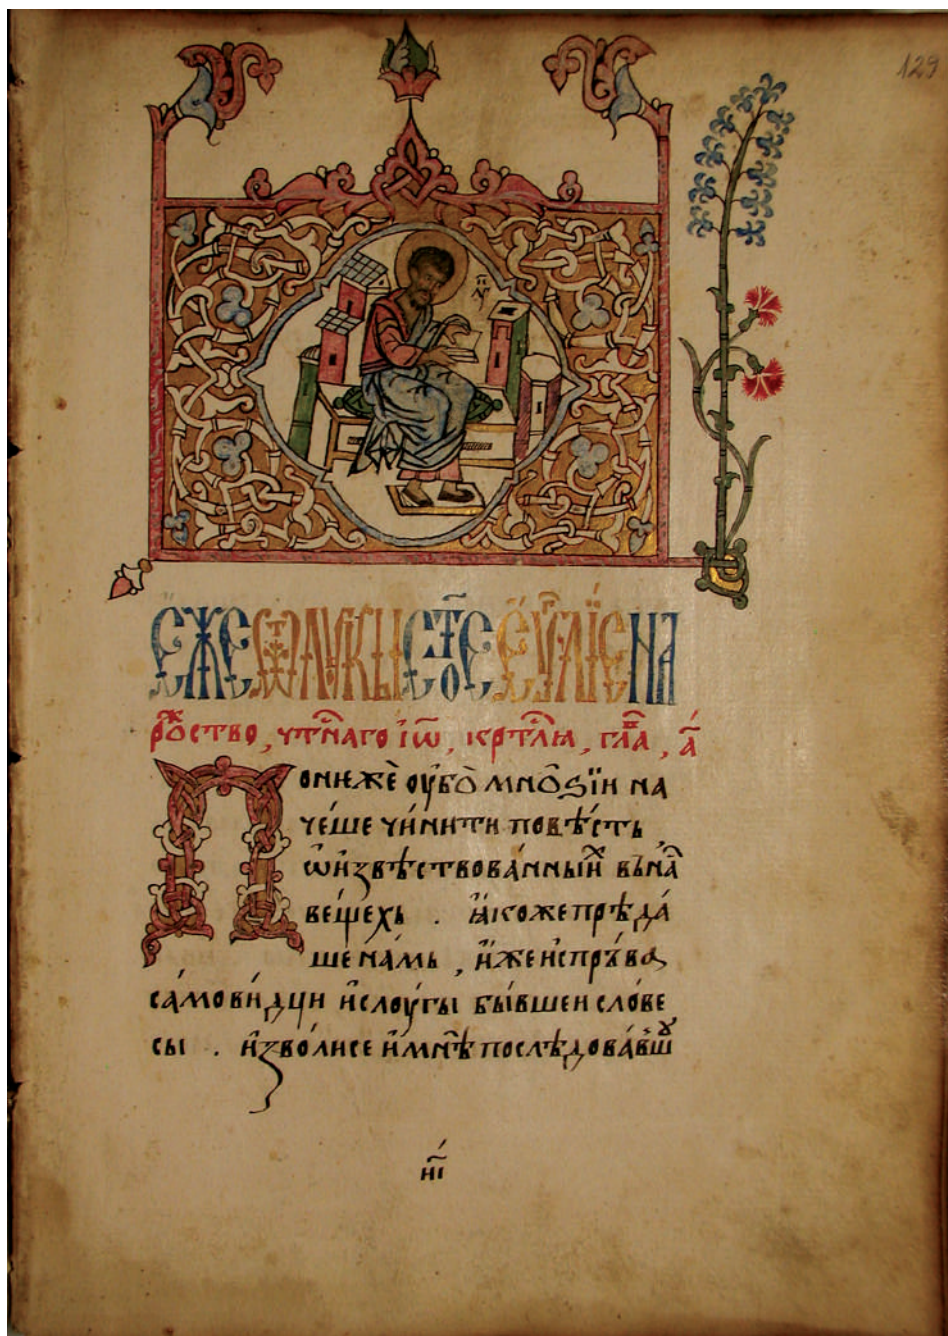 129
ЕЖЕ Ѿ ЛУКЫ СТ҃ОЕ ЕУ҃ЛІЕ НА
рожⷣство, чтⷭ҇наго іѡ҃, крⷭ҇тлꙗ, гла҃, а҃
Понѥже ѹбо мноѕїи на
чеше чинити повѣсть
ѡ извѣствованныиⷯ въ наⷭ҇
вещехь . ꙗкоже прѣда
ше намь , иже испрьва
самовидци и слоугы бывшеи слове
сы . изволисе и мнѣ послѣдовавшꙋ
ні҃